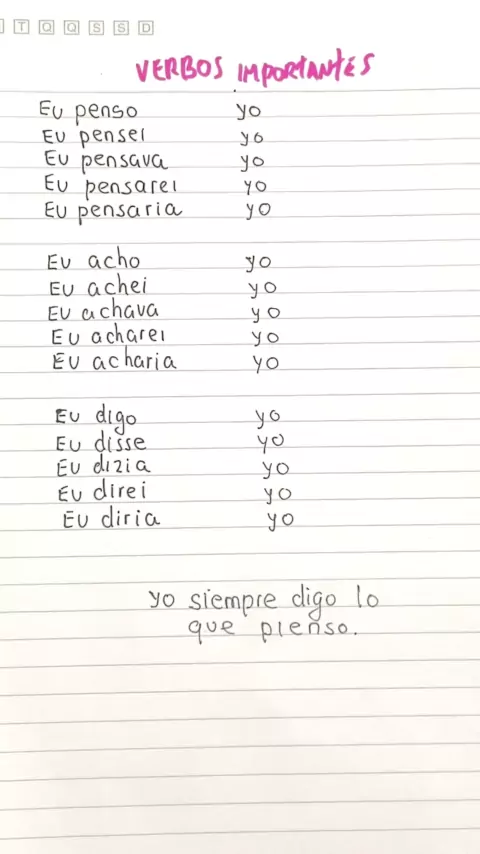 T Q Q S S D
VERBOS IMPORTANTES
Eu penso yo
Eu pensei yo
Eu pensava yo
Eu pensarei yo
Eu pensaria yo
Eu acho yo
Eu achei yo
Eu achava yo
Eu acharei yo
Eu acharia yo
Eu digo yo
Eu disse yo
Eu dizia yo
Eu direi yo
Eu diria yo
yo siempre digo lo
que pienso.